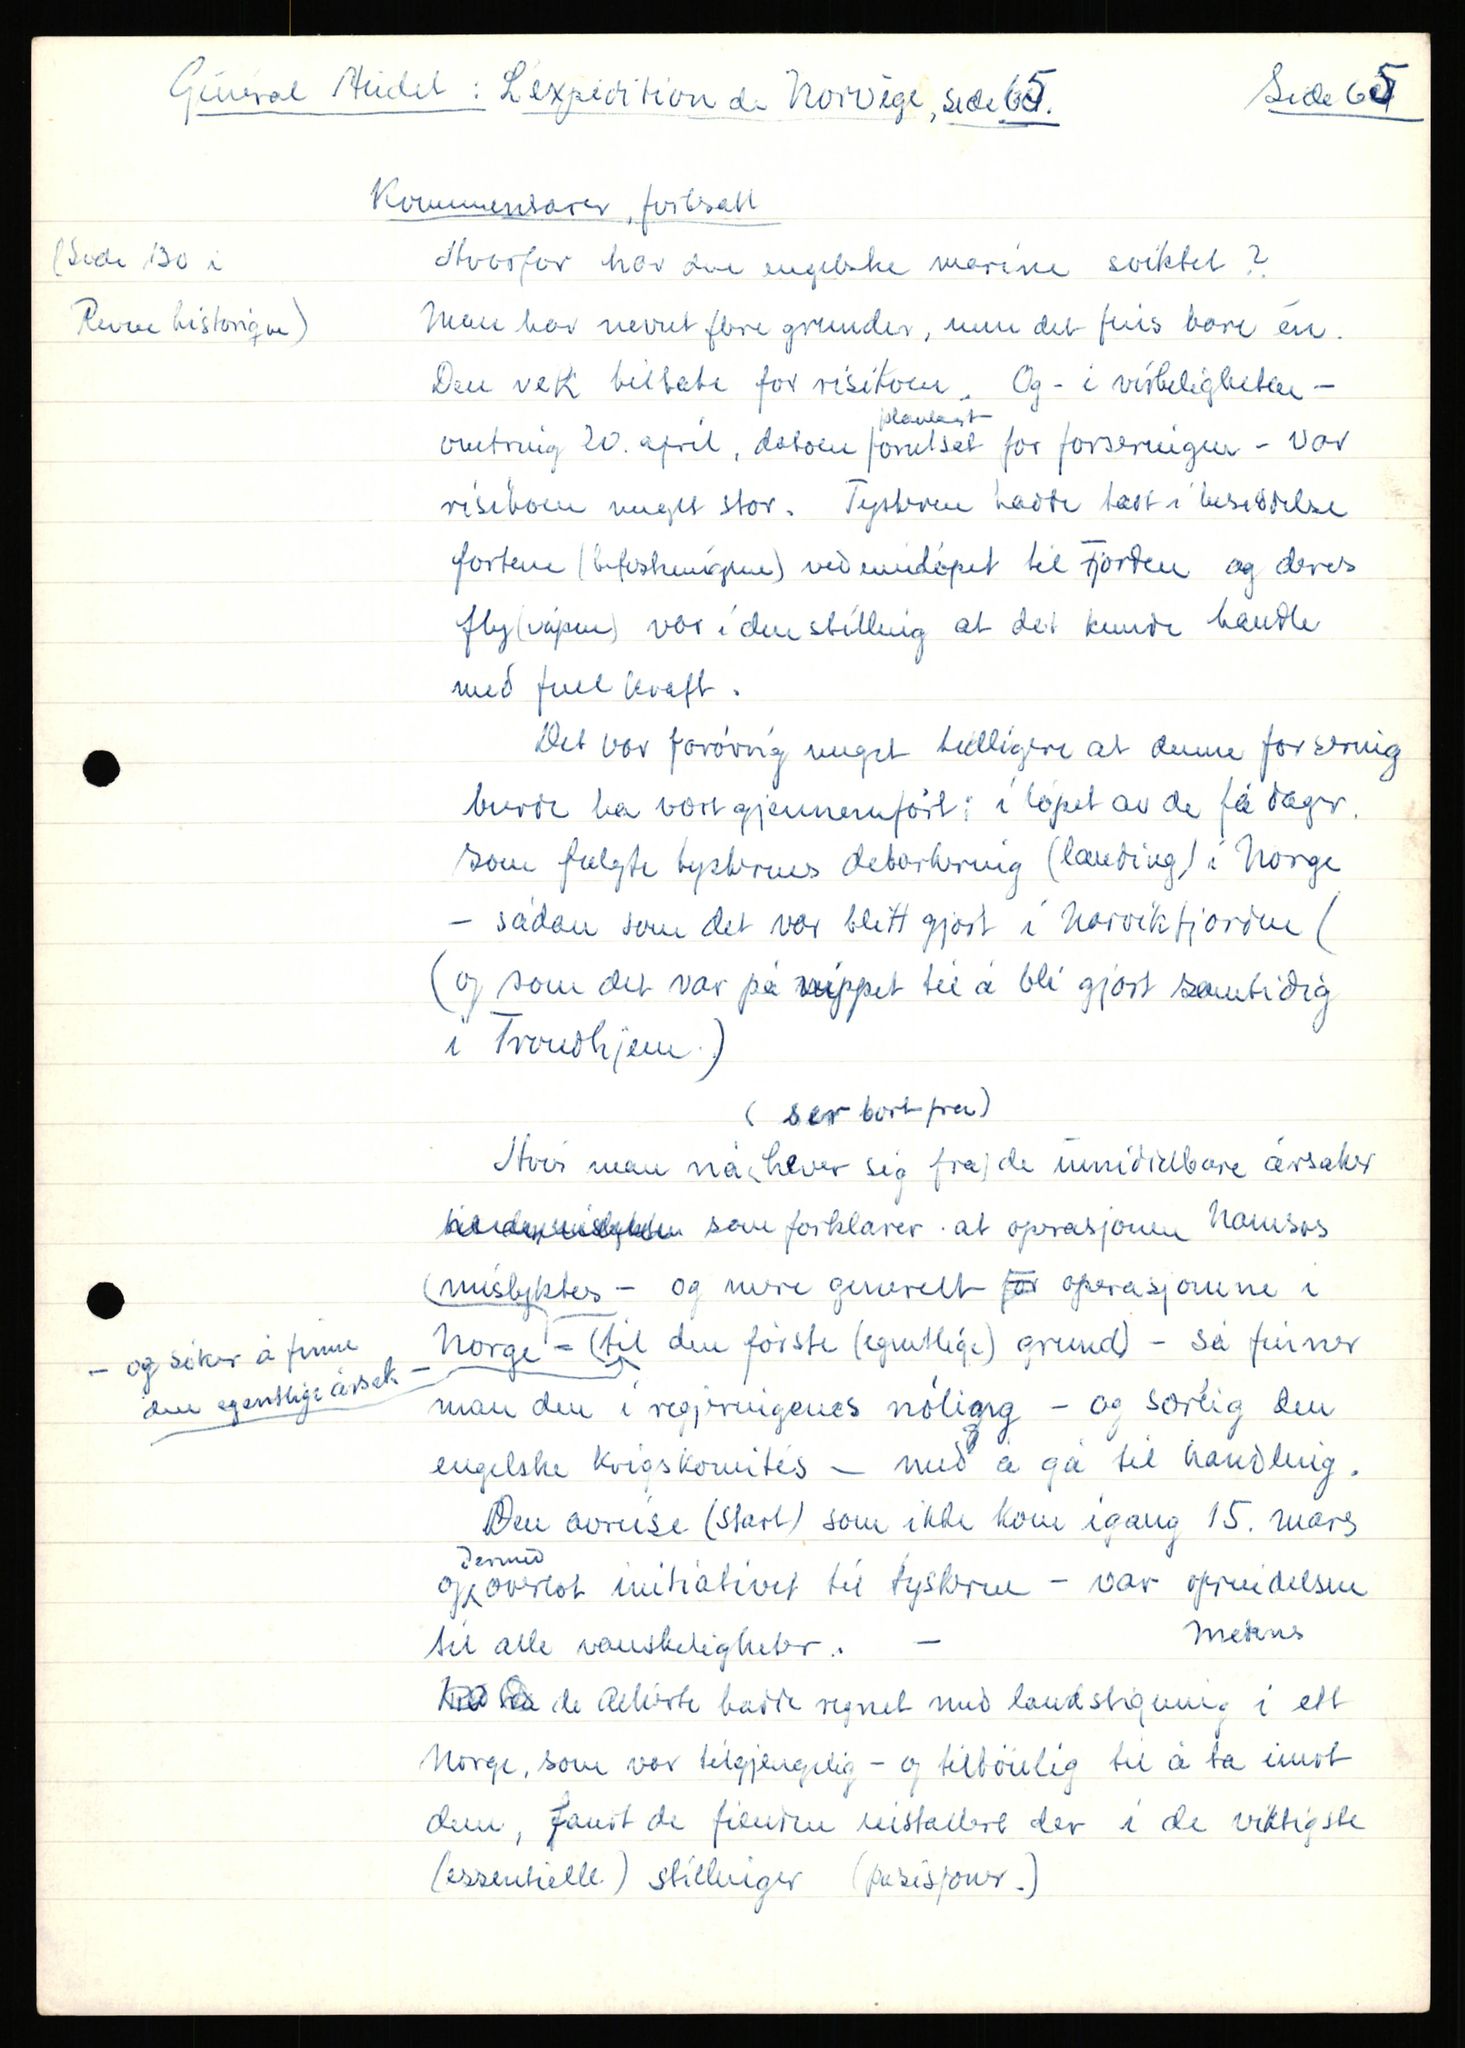 Général Audet : L'expédition de Norvège, side 65.
Side 65
Kommentarer, fortsatt
(Side 130 i
Revue historique)
Hvorfor har den engelske marine sviktet?
Man har nevnt flere grunder, men det fins bare én.
Den vek tilbake for risikoen. Og - i virkeligheten -
planlagt
omtring 20. april, datoen forutsat for forseringen - var
risikoen meget stor. Tyskerne hadde tatt i besiddelse
fortene (befestningene) ved innløpet til Fjorden og deres
fly(våpen) var i den stilling at det kunde handle
med full kraft.
Det var forøvrig meget tidligere at denne forsering
burde ha vært gjennemført: i løpet av de få dager.
som fulgte tyskernes debarkering (landing) i Norge
- sådan som det var blitt gjort i Narvikfjorden (
(og som det var på nippet til å bli gjort samtidig
i Trondhjem.)
(ser bort fra)
Hvis man nå (hever sig fra) de umiddelbare årsaker
som forklarer at operasjonen Namsos
(mislyktes - og mere generelt for operasjonene i
Norge - (til den første (egentlige) grund) - så finner
- og søker å finne
den egentlige årsak -
man den i regjeringenes nøling - og særlig den
engelske krigskomités - med å gå til handling.
Den avreise (start) som ikke kom igang 15. mars
dermed
og overlot initiativet til tyskerne - var oprindelsen
til alle vanskeligheter. - Mens
de Allierte hadde regnet med landstigning i ett
Norge, som var tilgjengelig - og tilbøielig til å ta imot
dem, fandt de fienden installert der i de viktigste
(essentielle) stillinger (posisjoner.)